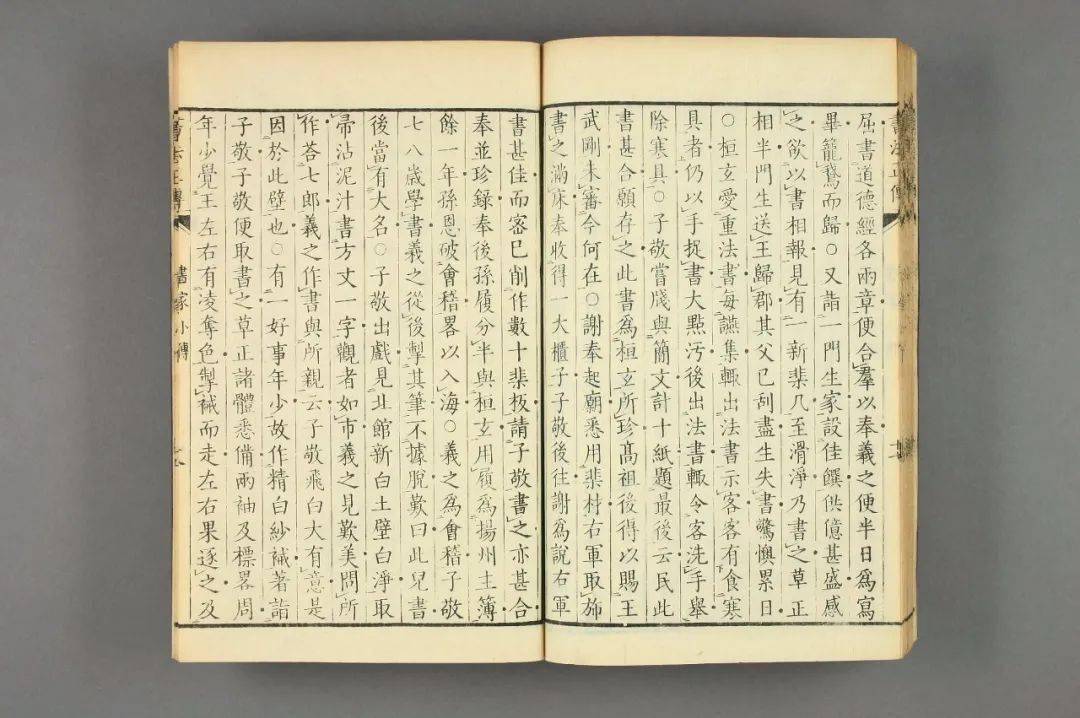 屈書道德經各兩章便合羣以奉義之便半日爲寫
畢籠鵞而歸○又詣一門生家設佳饌供億甚盛感
之欲以書相報見有一新棐几至滑淨乃書之草正
相半門生送王歸郡其父已刮盡生失書驚懊累日
○桓玄愛重法書每讌集輒出法書示客客有食寒
具者仍以手捉書大點汚後出法書輒令客洗手舉
除寒具○子敬嘗牋與簡文計十紙題最後云民此
書甚合願存之此書爲桓玄所珍高祖後得以賜王
武剛未審今何在○謝奉起廟悉用棐材右軍取棐
書之滿牀奉收得一大櫃子子敬後往謝爲說右軍
書甚佳而密已削作數十棐板請子敬書之亦甚合
奉並珍錄奉後孫履分半與桓玄用履爲揚州主簿
餘一年孫恩破會稽畧以入海○義之爲會稽子敬
七八歲學書義之從後掣其筆不據脫歎曰此兒書
後當有大名○子敬出戲見北館新白土壁白淨取
帚沾泥汁書方丈一字觀者如市義之見歎美問所
作答七郎義之作書與所親云子敬飛白大有意是
因於此壁也○有一好事年少故作精白紗裓著詣
子敬子敬便取書之草正諸體悉備兩袖及標畧周
年少覺王左右有凌奪色掣裓而走左右果逐之及
書家小傳